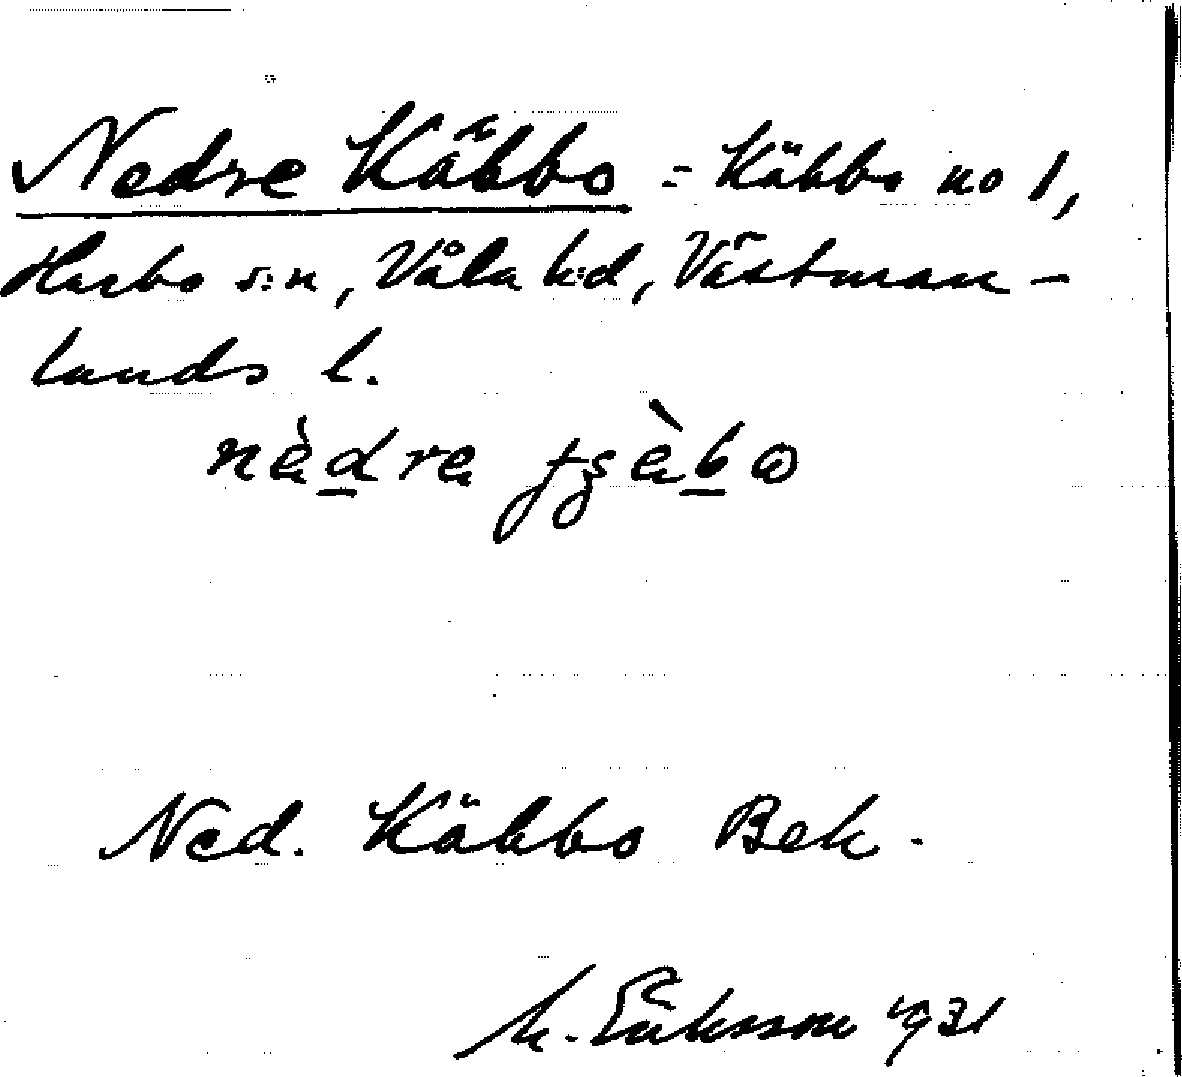 Nedre Käbbo = Käbbo no 1,
Harbo s:n, Våla h:d, Västman-
lands l.
nèdre ʄʂèbɷ
Ned. Käbbo Bek.
M. Eriksson 1931